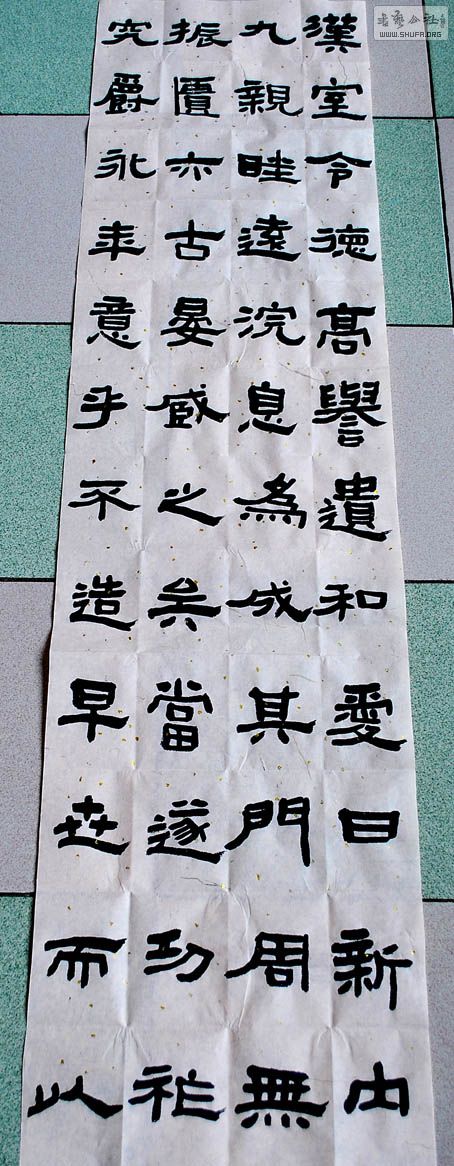 漢室令德高譽遺和愛日新內
九親畦遠浣息為成其門周無
振匱亦古晏臧之矣當遂功祚
究爵永年意乎不造早世而以
書藝公社
WWW.SHUFA.ORG